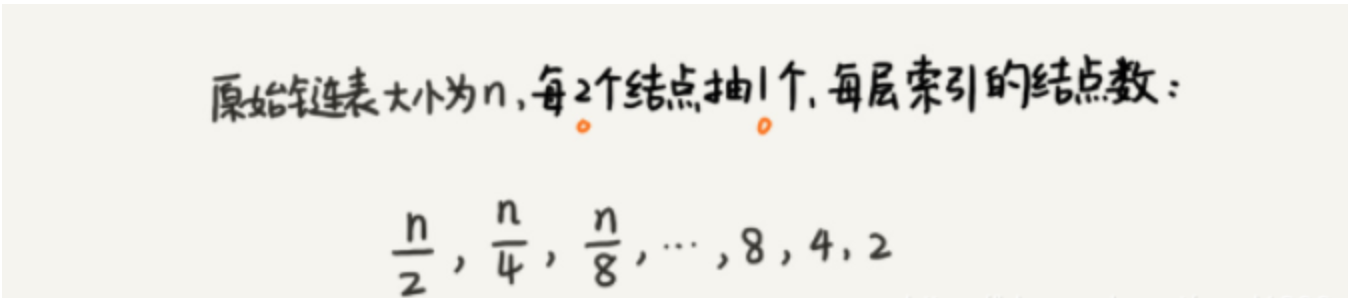 原始链表大小为n,每2个结点抽1个,每层索引的结点数:
n/2, n/4, n/8, ···, 8, 4, 2